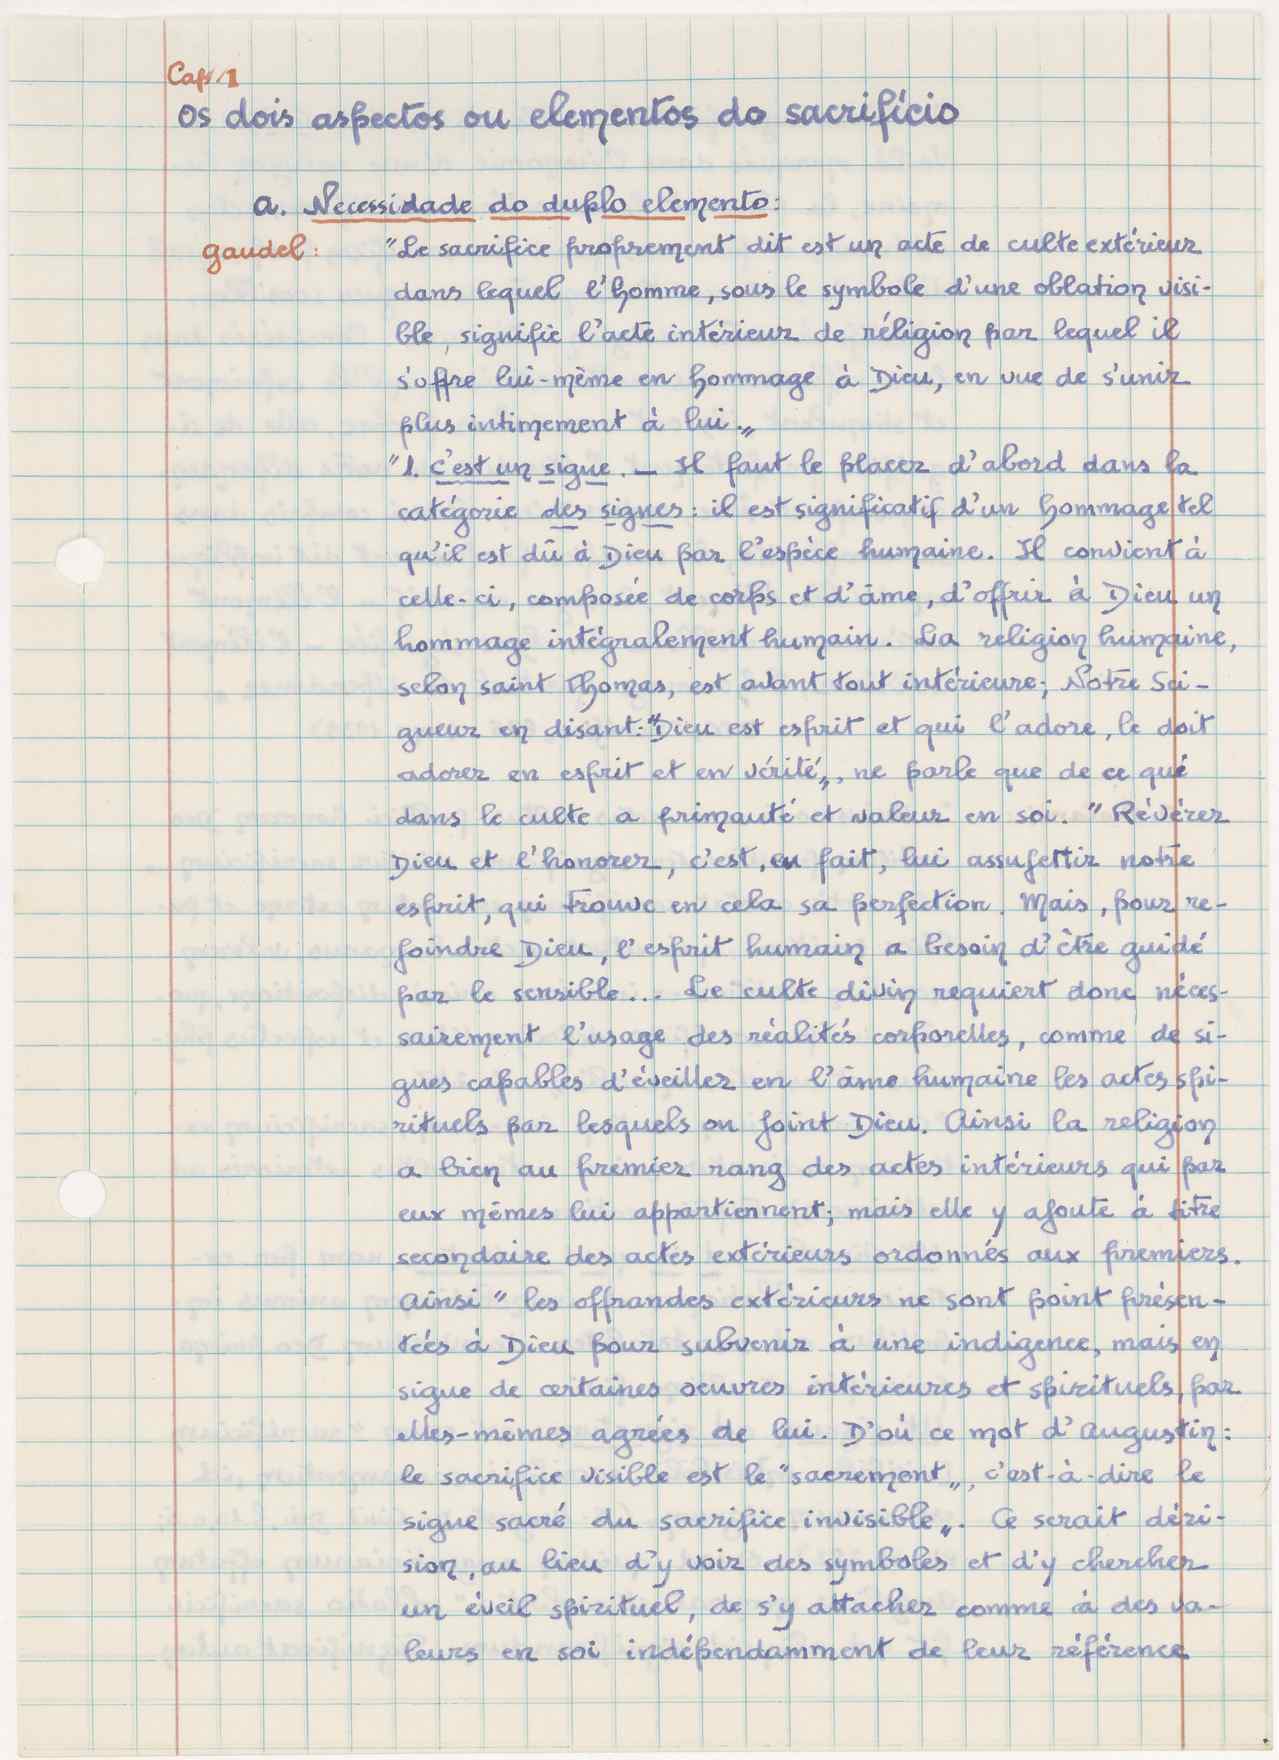 Cap. 1
Os dois aspectos ou elementos do sacrifício
a. Necessidade do duplo elemento:
gaudel: "Le sacrifice proprement dit est un acte de culte extérieur
dans lequel l'homme, sous le symbole d'une oblation visi-
ble, signific l'acte intérieur de réligion par lequel il
s'offre lui-même en hommage à Dieu, en vue de s'unir
plus intimement à lui.„
"1. C'est un signe. — Il faut le placer d'abord dans la
catégorie des signes: il est significatif d'un hommage tel
qu'il est dû à Dieu par l'espèce humaine. Il convient à
celle-ci, composée de corps et d'âme, d'offrir à Dieu un
hommage intégralement humain. La religion humaine,
selon saint Thomas, est avant tout intérieure; Notre Sei-
gneur en disant: "Dieu est esprit et qui l'adore, le doit
adorer en esprit et en vérité„, ne parle que de ce qué
dans le culte a primauté et valeur en soi. "Révérer
Dieu et l'honorer, c'est, en fait, lui assujettir notre
esprit, qui trouve en cela sa perfection. Mais, pour re-
joindre Dieu, l'esprit humain a besoin d'être guidé
par le sensible... Le culte divin requiert donc néces-
sairement l'usage des réalités corporelles, comme de si-
gnes capables d'éveiller en l'âme humaine les actes spi-
rituels par lesquels on joint Dieu. Ainsi la religion
a bien au premier rang des actes intérieurs qui par
eux mêmes lui appartiennent; mais elle y ajoute à titre
secondaire des actes extérieurs ordonnés aux premiers.
Ainsi " les offrandes extérieurs ne sont point présen-
tées à Dieu pour subvenir à une indigence, mais en
signe de certaines oeuvres intérieures et spirituels, par
elles-mêmes agrées de lui. D'où ce mot d'Augustin:
le sacrifice visible est le "sacrement„, c'est-à-dire le
signe sacré du sacrifice invisible„. Ce serait déri-
sion, au lieu d'y voir des symboles et d'y chercher
un éveil spirituel, de s'y attacher comme à des va-
leurs en soi indépendamment de leur référence